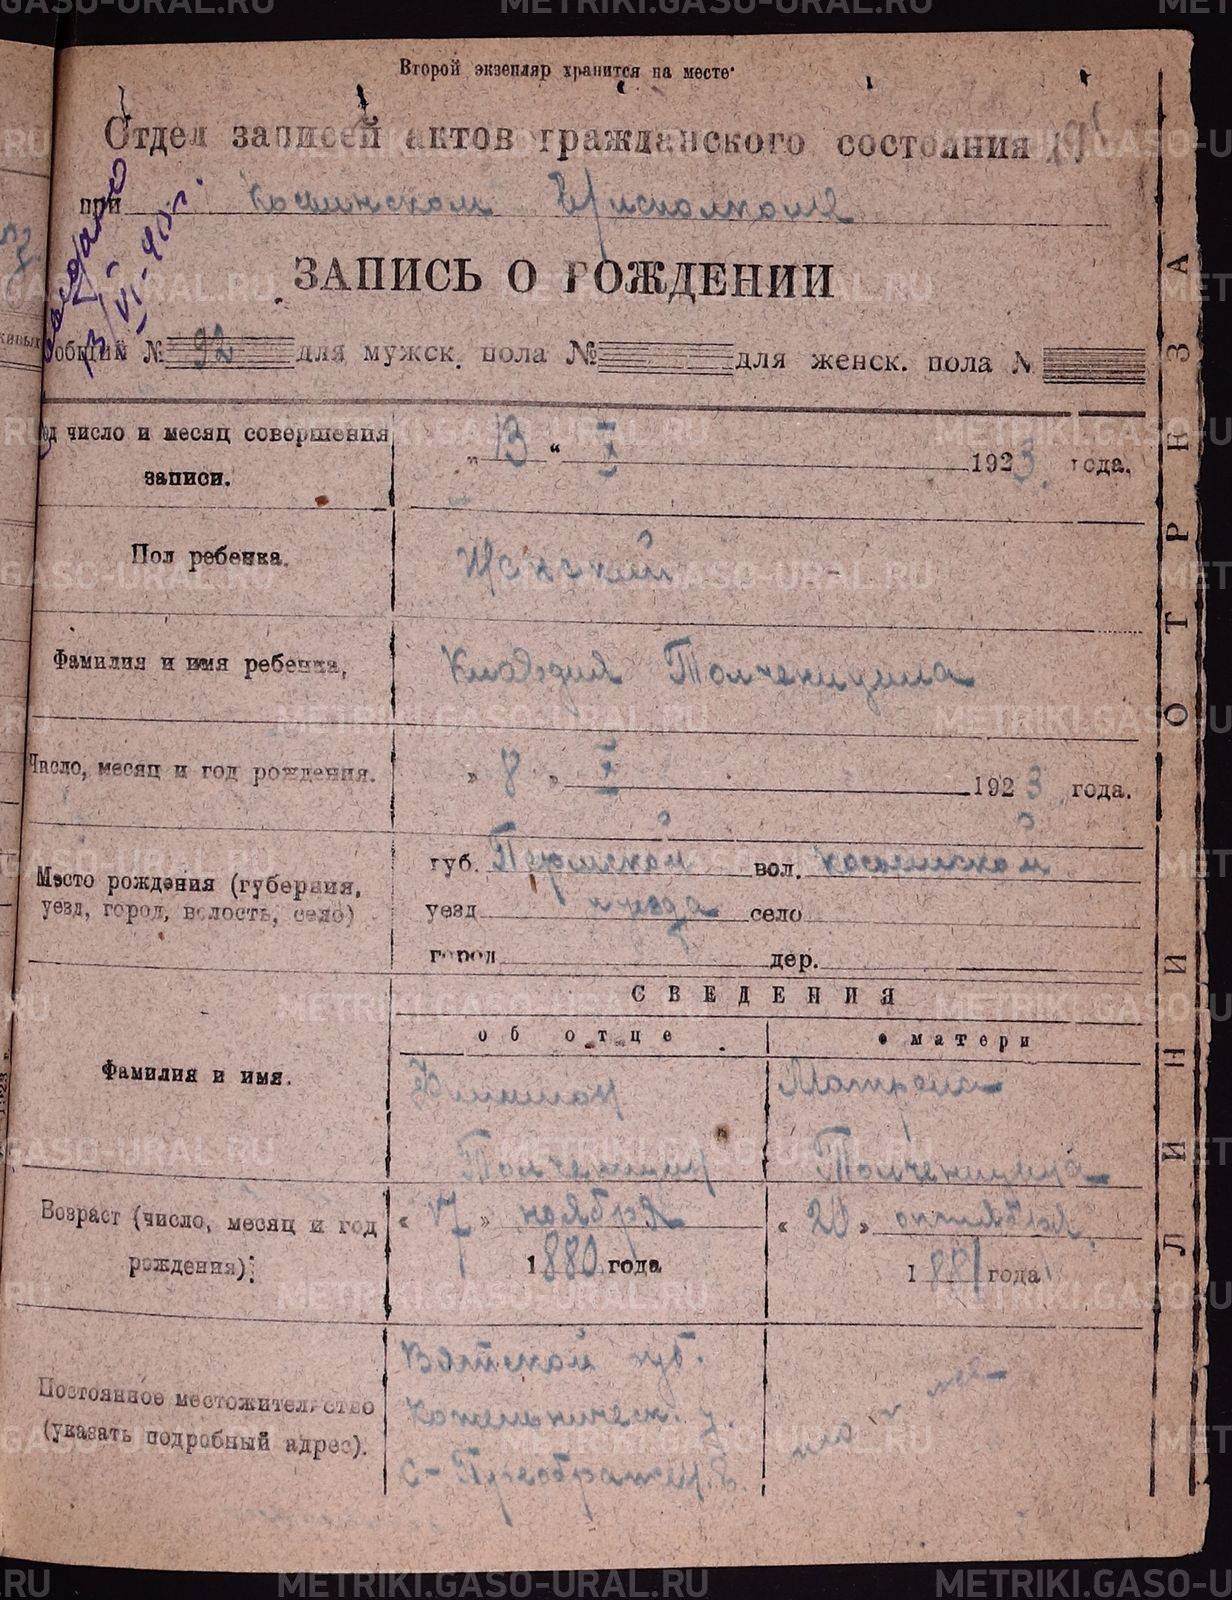 Второй экзепляр хранится на месте
Отдел записей актов гражданского состояния
при Косинском Врисполкоме
выдано
13/VI-40г.
ЗАПИСЬ О РОЖДЕНИИ
общий № 92 для мужск. пола № для женск. пола №
Год число и месяц совершения „ 13 “ X 1923 года.
записи.
Пол ребенка. Женский
Фамилия и имя ребенка, Клавдия Толченицина
Число, месяц и год рождения. „ 8 „ X 1923 года.
Место рождения (губерния, губ. Пермской вол. Косинской
уезд, город, волость, село) уезд села
город дер.
СВЕДЕНИЯ
об отце о матери
Фамилия и имя. Матрена
Толченицин Толченицина
Возраст (число, месяц и год « 17 » ноября « 20 » октября
рождения): 1880 года 1881 года
Постоянное местожительство Вятской губ.
(указать подробный адрес). у.
ЛИНИЯ ОТРЕЗА
METRIKI.GASO-URAL.RU